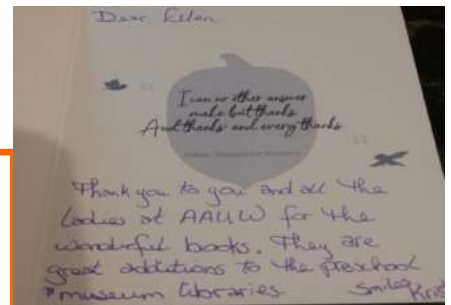 Dear Ellen,
I can no other answer
make but thanks
And thanks and every thanks
Thank you to you and all the
Ladies at AAUW for the
wonderful books. They are
great additions to the preschool
museum libraries
Smiles
Kris